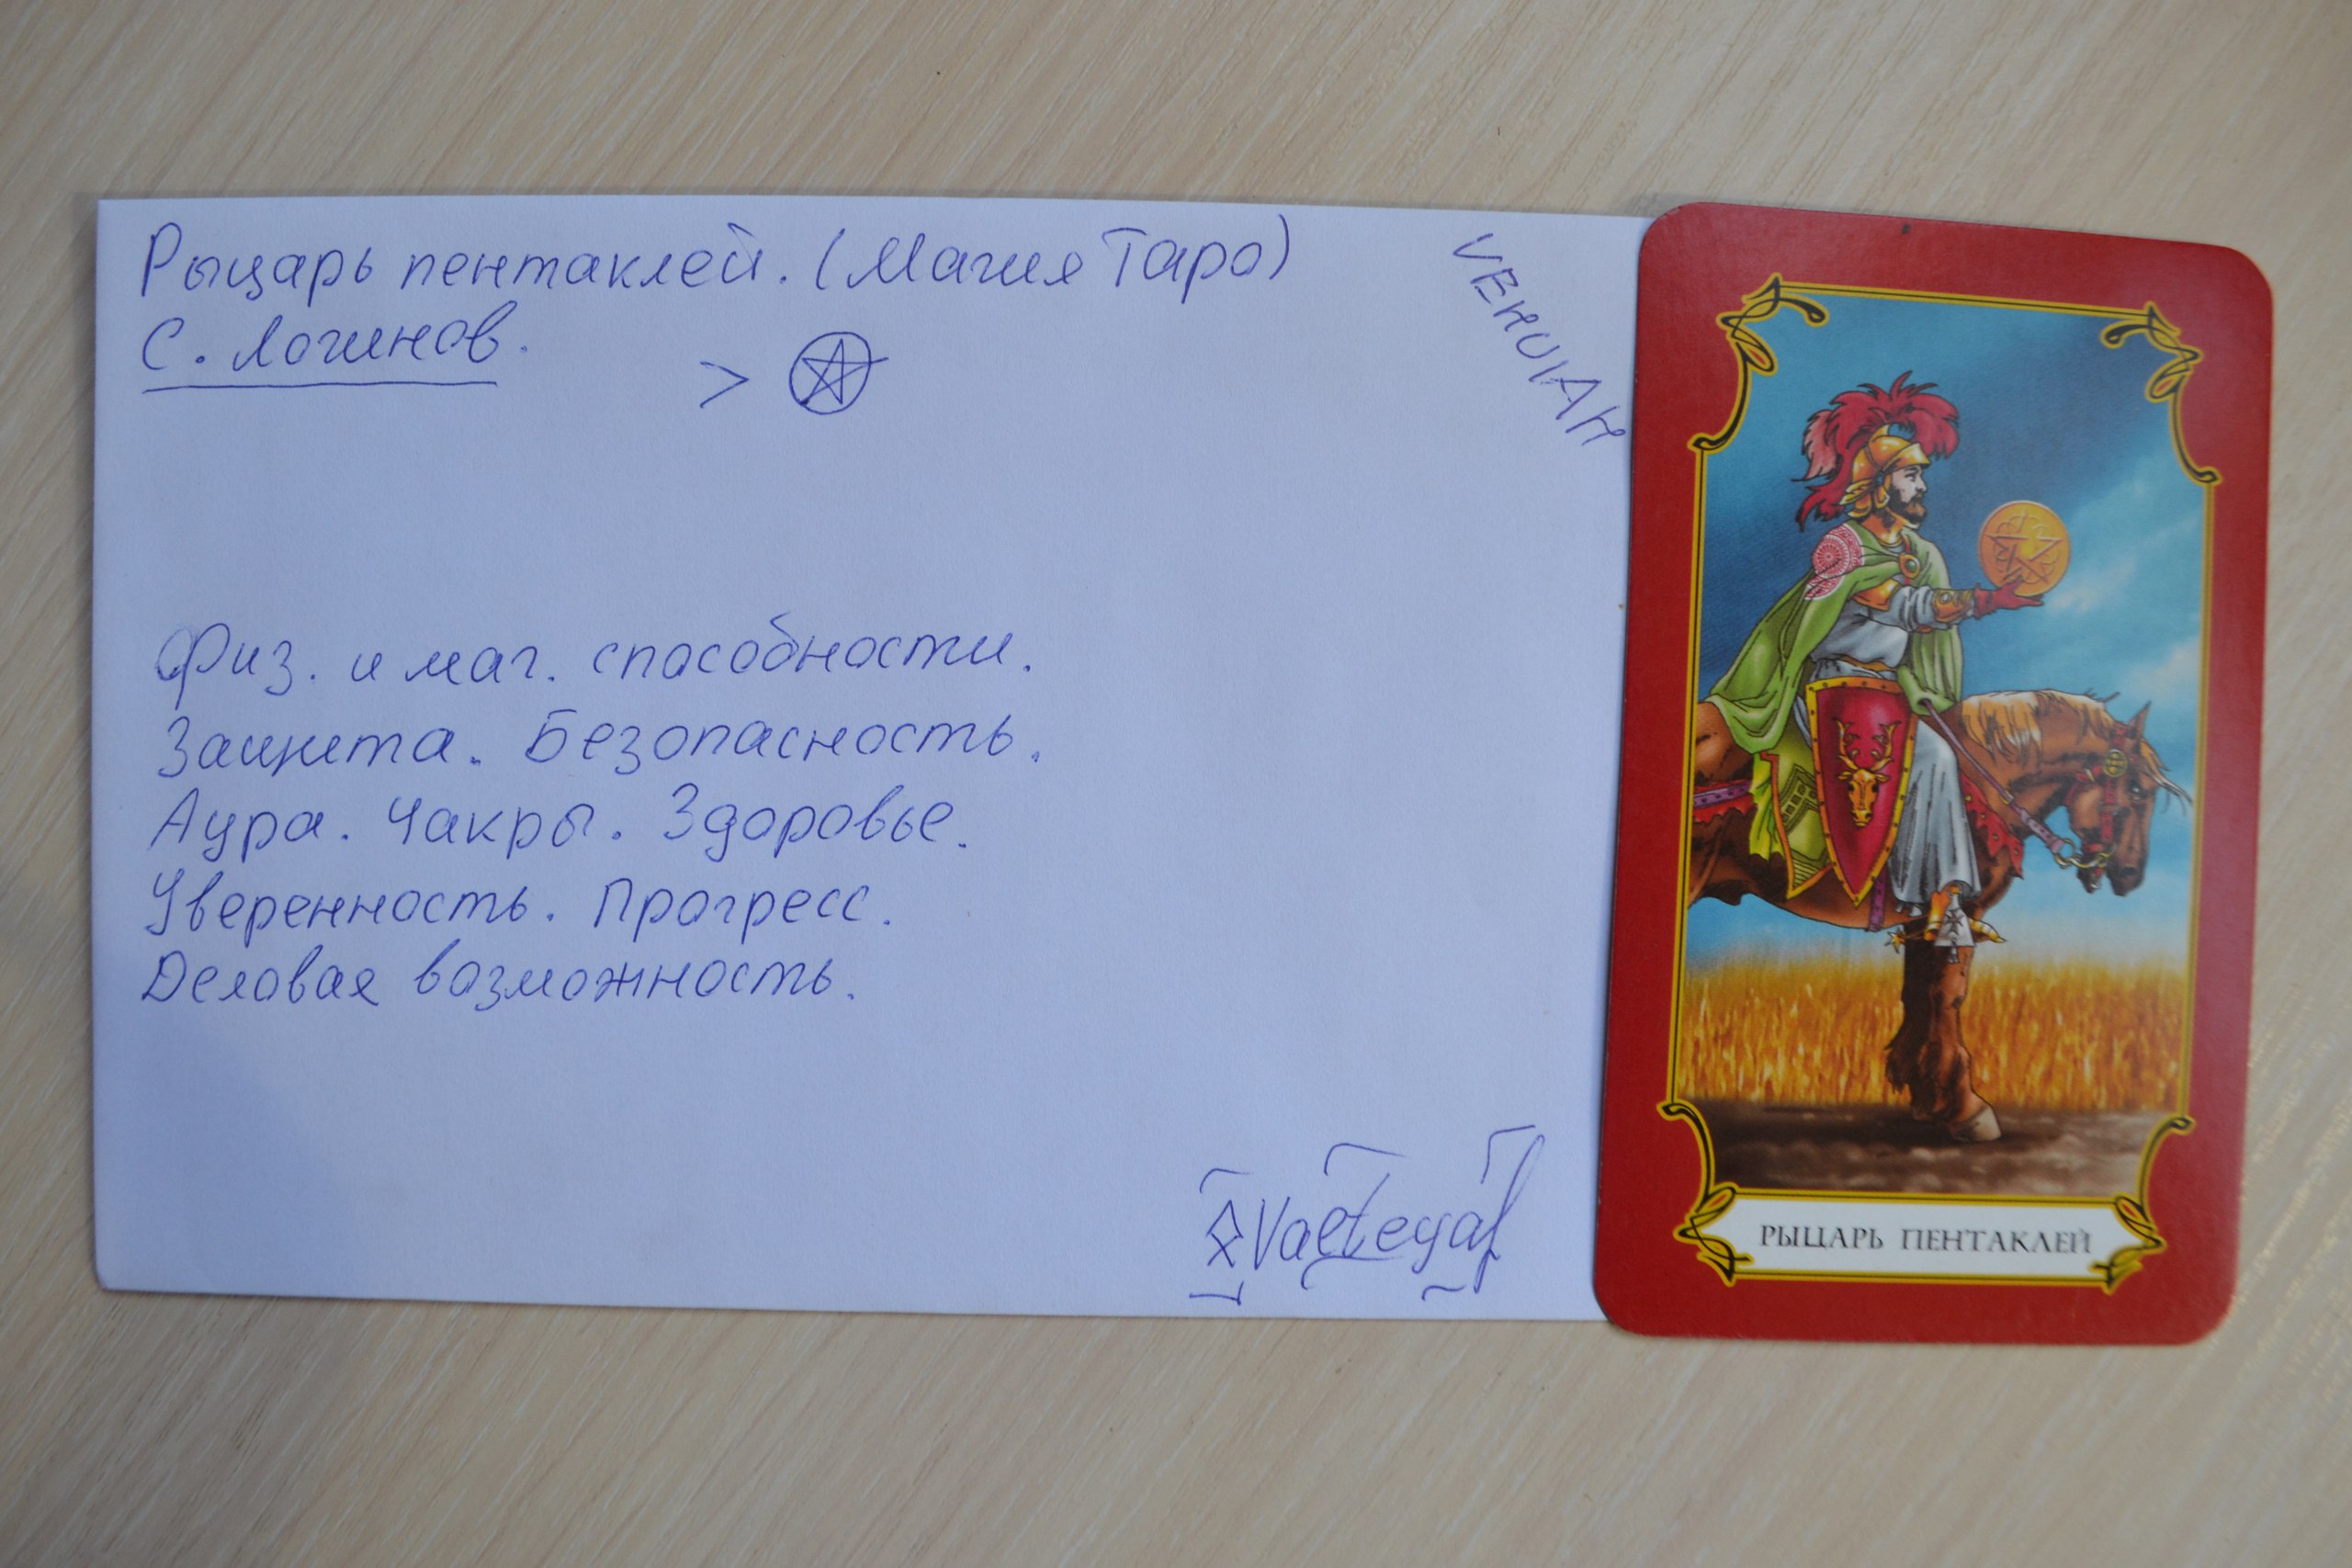 Рыцарь пентаклей. (Магия Таро)
С. Логинов.
>
VEHUIAH
Физ. и маг. способности.
Защита. Безопасность.
Аура. Чакры. Здоровье.
Уверенность. Прогресс.
Деловая возможность.
РЫЦАРЬ ПЕНТАКЛЕЙ